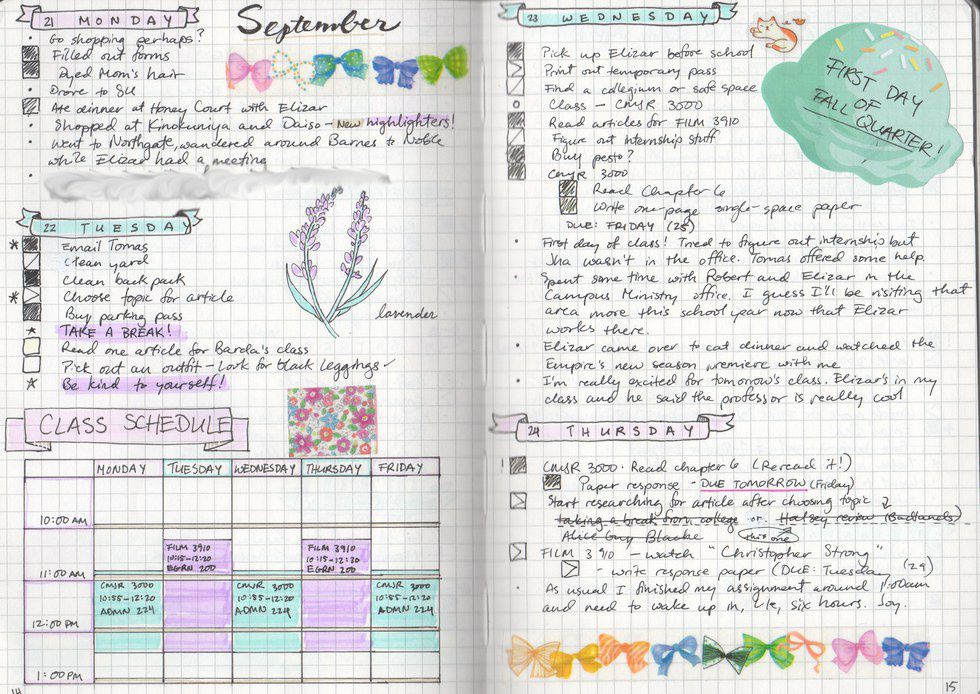 September
21 MONDAY
Go shopping perhaps?
Filled out forms
Dyed Mom's hair
Drove to SU
Ate dinner at Honey Court with Elizar
Shopped at Kinokuniya and Daiso - new highlighters!
Went to Northgate, wandered around Barnes to Noble
while Elizar had a meeting
22 TUESDAY
* Email Tomas
Clean yard
Clean back pack
* Choose topic for article
Buy parking pass
* TAKE A BREAK!
Read one article for Barda's class
Pick out an outfit - Look for black leggings ✓
* Be kind to yourself!
lavender
CLASS SCHEDULE
MONDAY TUESDAY WEDNESDAY THURSDAY FRIDAY
10:00 AM
FILM 3910 FILM 3910
10:15-12:20 10:15-12:20
11:00 AM EGRN 200 EGRN 200
CMJR 3000 CMJR 3000 CMJR 3000
10:55-12:20 10:55-12:20 10:55-12:20
ADMN 224 ADMN 224 ADMN 224
12:00 PM
1:00 PM
14
23 WEDNESDAY
Pick up Elizar before school
Print out temporary pass
Find a collegium or safe space
Class - CMJR 3000
Read articles for FILM 3910
Figure out internship stuff
Buy pesto?
CMJR 3000
Read Chapter 6
Write one-page single-space paper
DUE: FRIDAY (25)
FIRST DAY
OF
FALL QUARTER!
First day of class! Tried to figure out internship but
Jha wasn't in the office. Tomas offered some help
Spent some time with Robert and Elizar in the
Campus Ministry office. I guess I'll be visiting that
area more this school year now that Elizar
works there.
Elizar came over to eat dinner and watched the
Empire's new season premiere with me
I'm really excited for tomorrow's class. Elizar's in my
class and he said the professor is really cool
24 THURSDAY
! CMJR 3000. Read chapter 6 (Reread it!)
Paper response - DUE TOMORROW (Friday)
Start researching for article after choosing topic
taking a break from college or Halsey review (Badlands)
Alice Guy Blache (this one)
FILM 3910 - watch "Christopher Strong"
- write response paper (DUE: Tuesday (29)
As usual I finished my assignment around 1:00am
and need to wake up in, like, six hours. Joy.
15